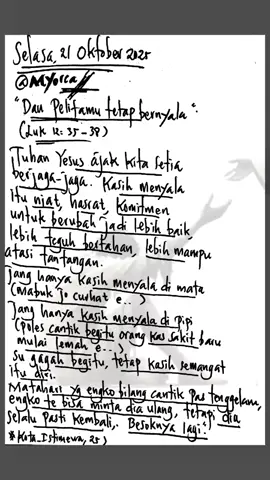 Selasa, 21 Oktober 2025
@Myorca
"Dan Pelitamu tetap bernyala".
(Luk 12: 35-38)
Tuhan Yesus ajak kita setia
berjaga-jaga. Kasih menyala
itu niat, hasrat, komitmen
untuk berubah jadi lebih baik
lebih teguh bertahan, lebih mampu
atasi tantangan.
Jang hanya kasih menyala di mata
(mabuk jo curhat e..)
Jang hanya kasih menyala di pipi
(poles cantik begitu orang kas sakit baru
mulai lemah e..)
su gagah begitu, tetap kasih semangat
itu diri.
Matahari yg engko bilang cantik pas tenggelam,
engko te bisa minta dia ulang, tetapi dia
selalu pasti kembali,. Besoknya lagi".
*Kota_Istimewa, 25)